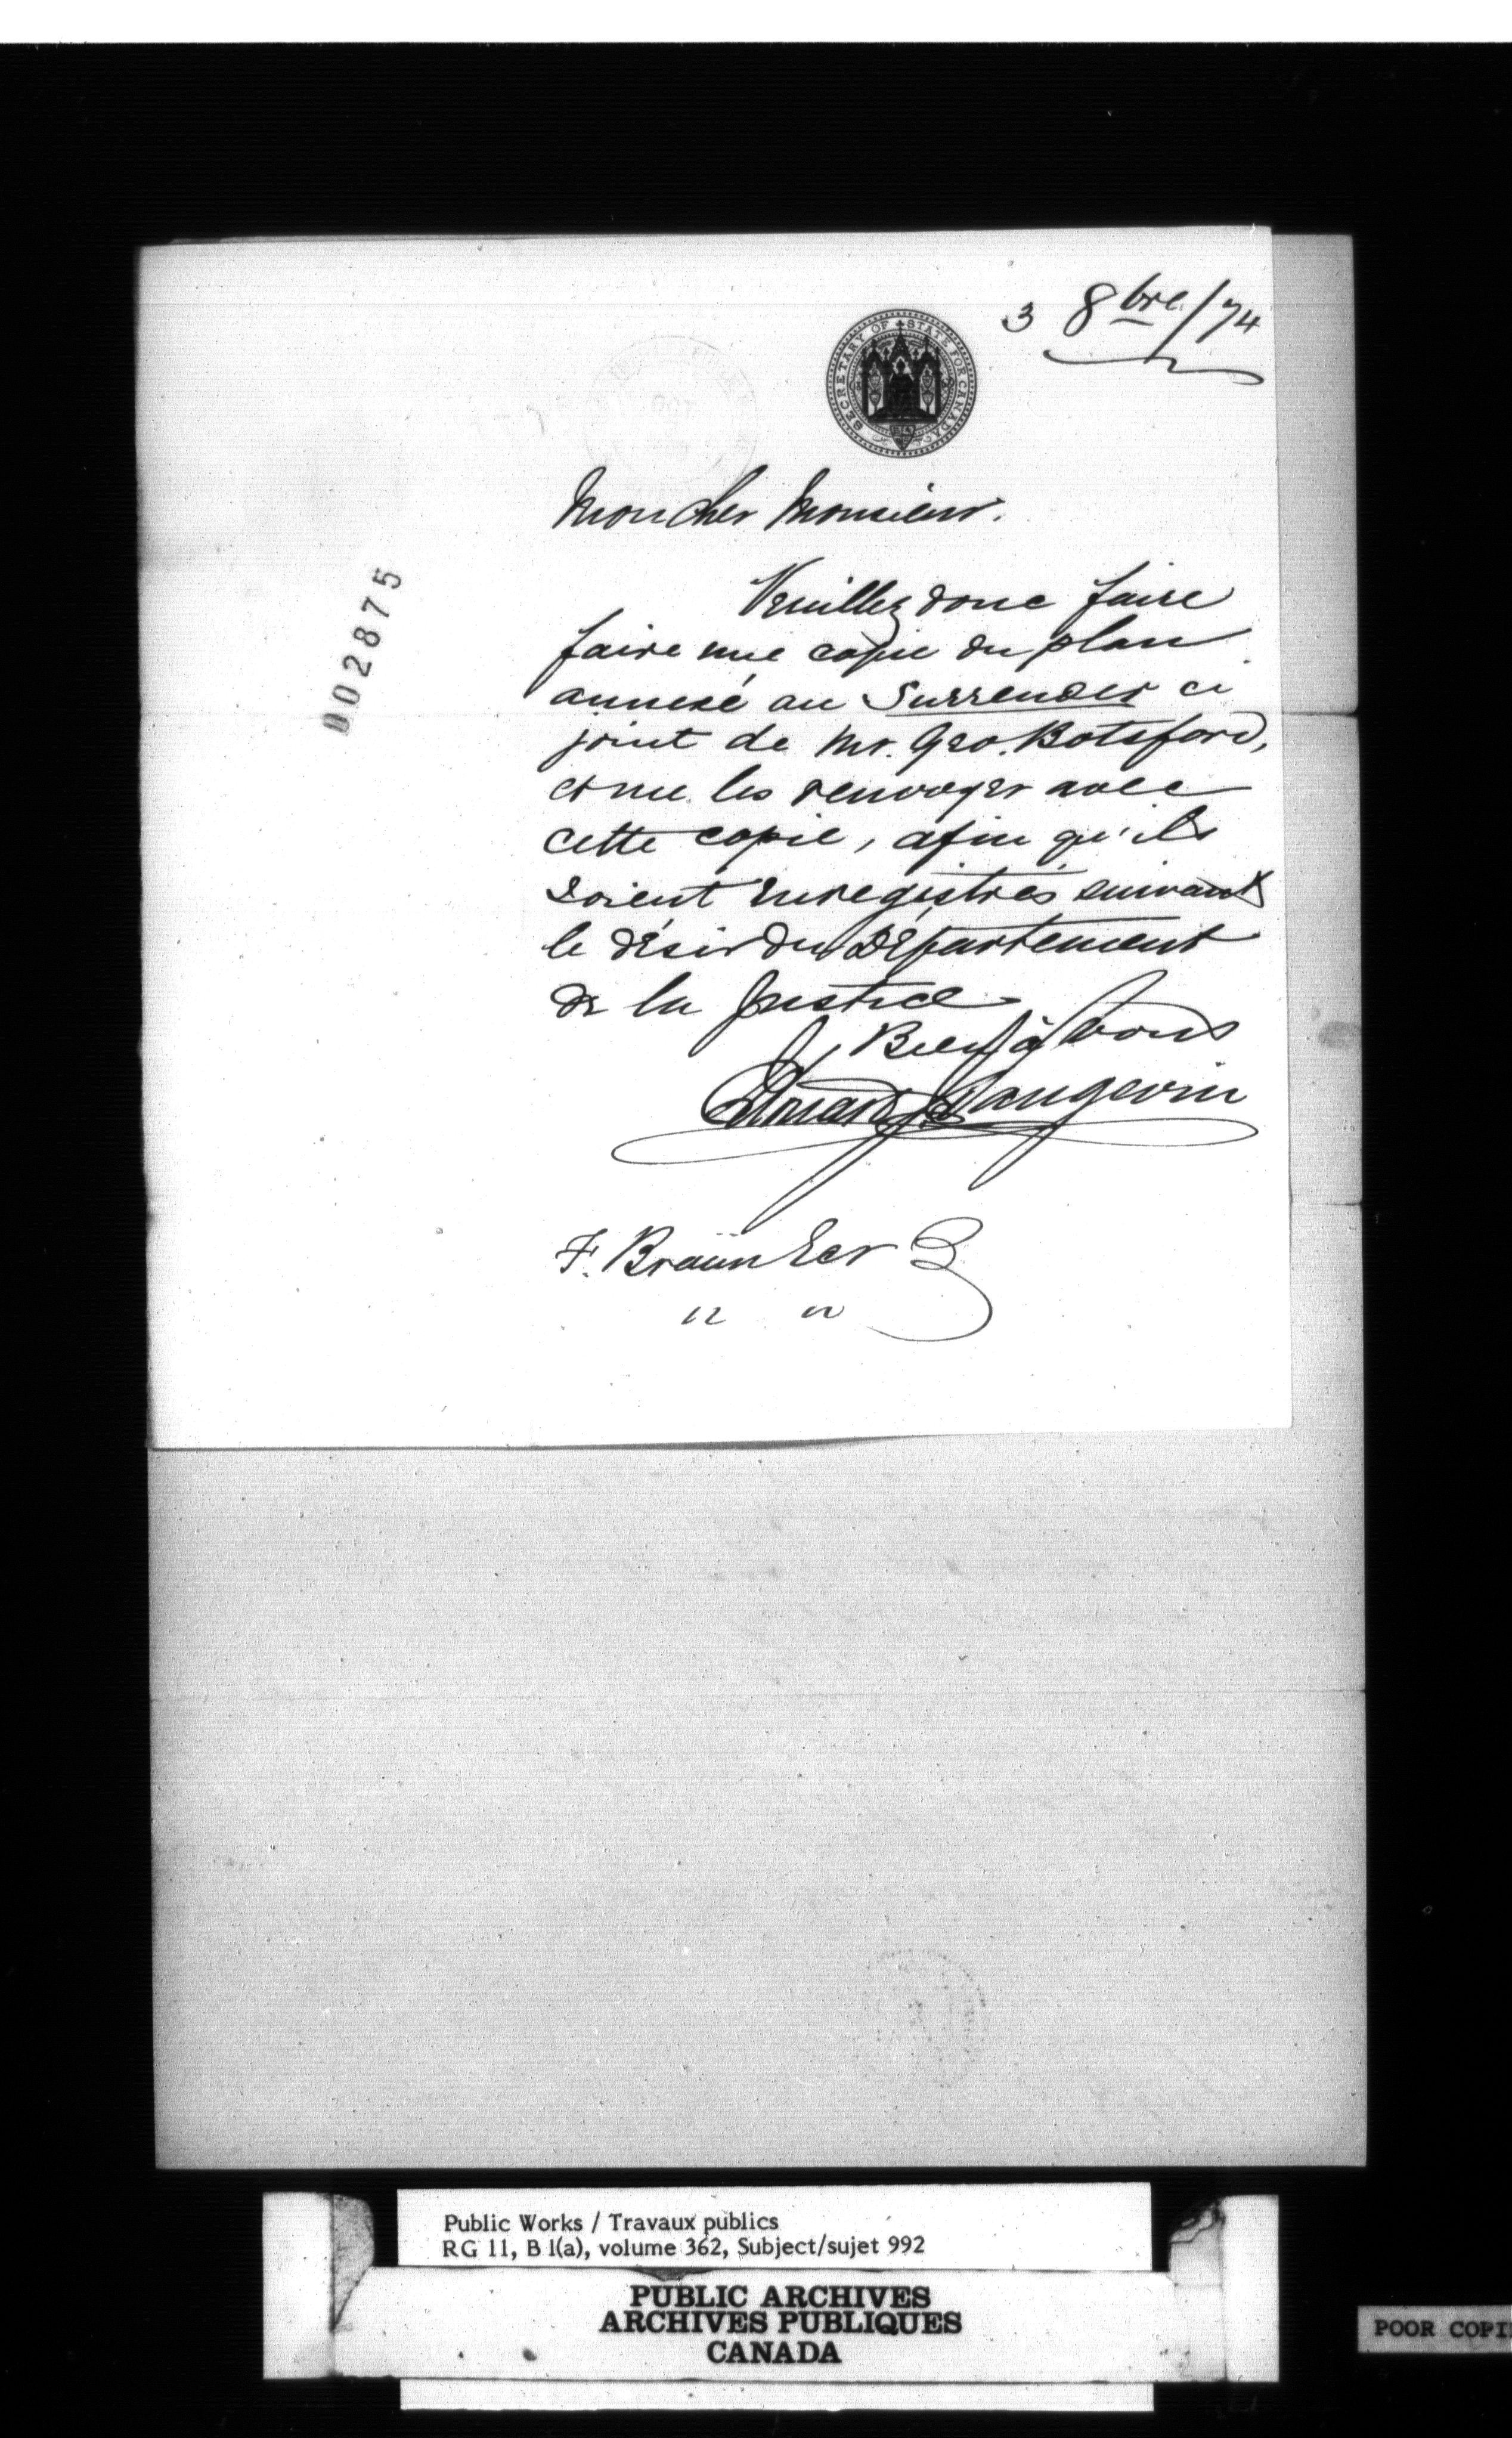 3 8bre/74
SECRETARY OF STATE FOR CANADA
002875
Mon cher Monsieur.
Veuillez donc faire
faire une copie du plan
annexé au Surrender ci
joint de Mr. Geo. Botsford,
et me les renvoyer avec
cette copie, afin qu'ils
soient enregistrés suivant
le désir du Département
de la Justice
Bien à vous
Edouard J. Langevin
F. Braün Ecr
Public Works / Travaux publics
RG 11, B 1(a), volume 362, Subject/sujet 992
PUBLIC ARCHIVES
ARCHIVES PUBLIQUES
CANADA
POOR COPI